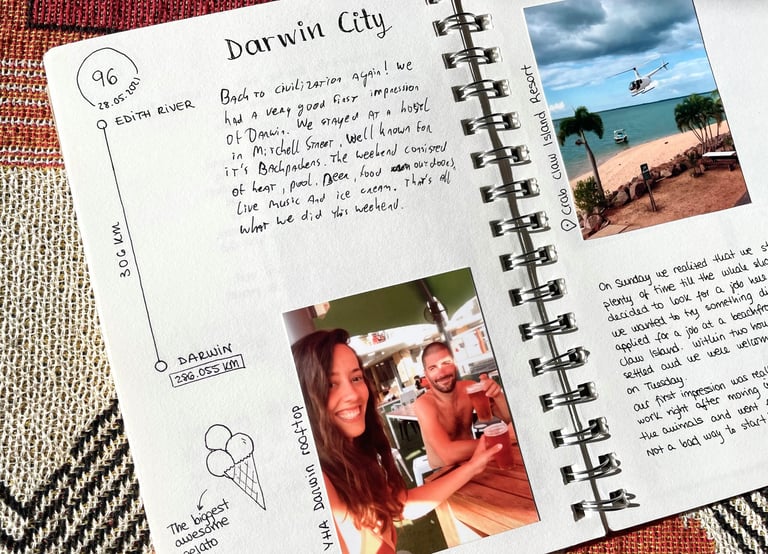 Darwin City
96
28.05.2021
EDITH RIVER
306 KM
DARWIN
286.055 KM
Back to civilization again! We
had a very good first impression
of Darwin. We stayed at a hostel
in Mitchell Street, Well known for
it's Backpackers. The weekend consisted
of heat, pool, Beer, food outdoors,
live music And ice cream. That's all
what we did this weekend.
The biggest
awesome
gelato
YHA Darwin rooftop
Crab Claw Island Resort
On Sunday we realized that we st
plenty of time till the whale sha
decided to look for a job here
we wanted to try something di
applied for a job at a beachfro
Claw Island. Within two hou
settled and we were welcom
on Tuesday.
our first impression was reall
work right after moving i
the animals and went f
Not a bad way to start